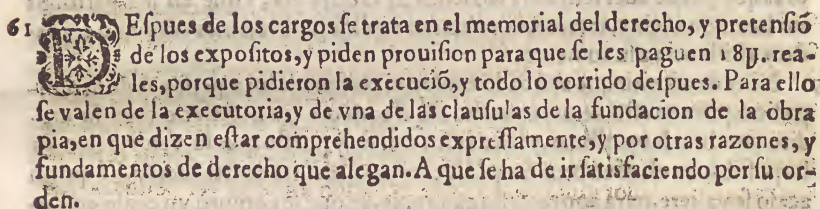 61 DEſpues de los cargos ſe trata en el memorial del derecho, y pretenſiõ
de los expoſitos, y piden prouiſion para que ſe les paguen 18U. rea-
les, porque pidieron la execuciõ, y todo lo corrido deſpues. Para ello
ſe valen de la executoria, y de vna de las clauſulas de la fundacion de la obra
pia, en que dizen eſtar comprehendidos expreſſamente, y por otras razones, y
fundamentos de derecho que alegan. A que ſe ha de ir ſatisfaciendo por ſu or-
den.